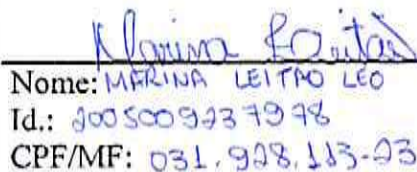 Marina Leitão
Nome: MARINA LEITAO LEO
Id.: 2005009237978
CPF/MF: 031.928.113-23